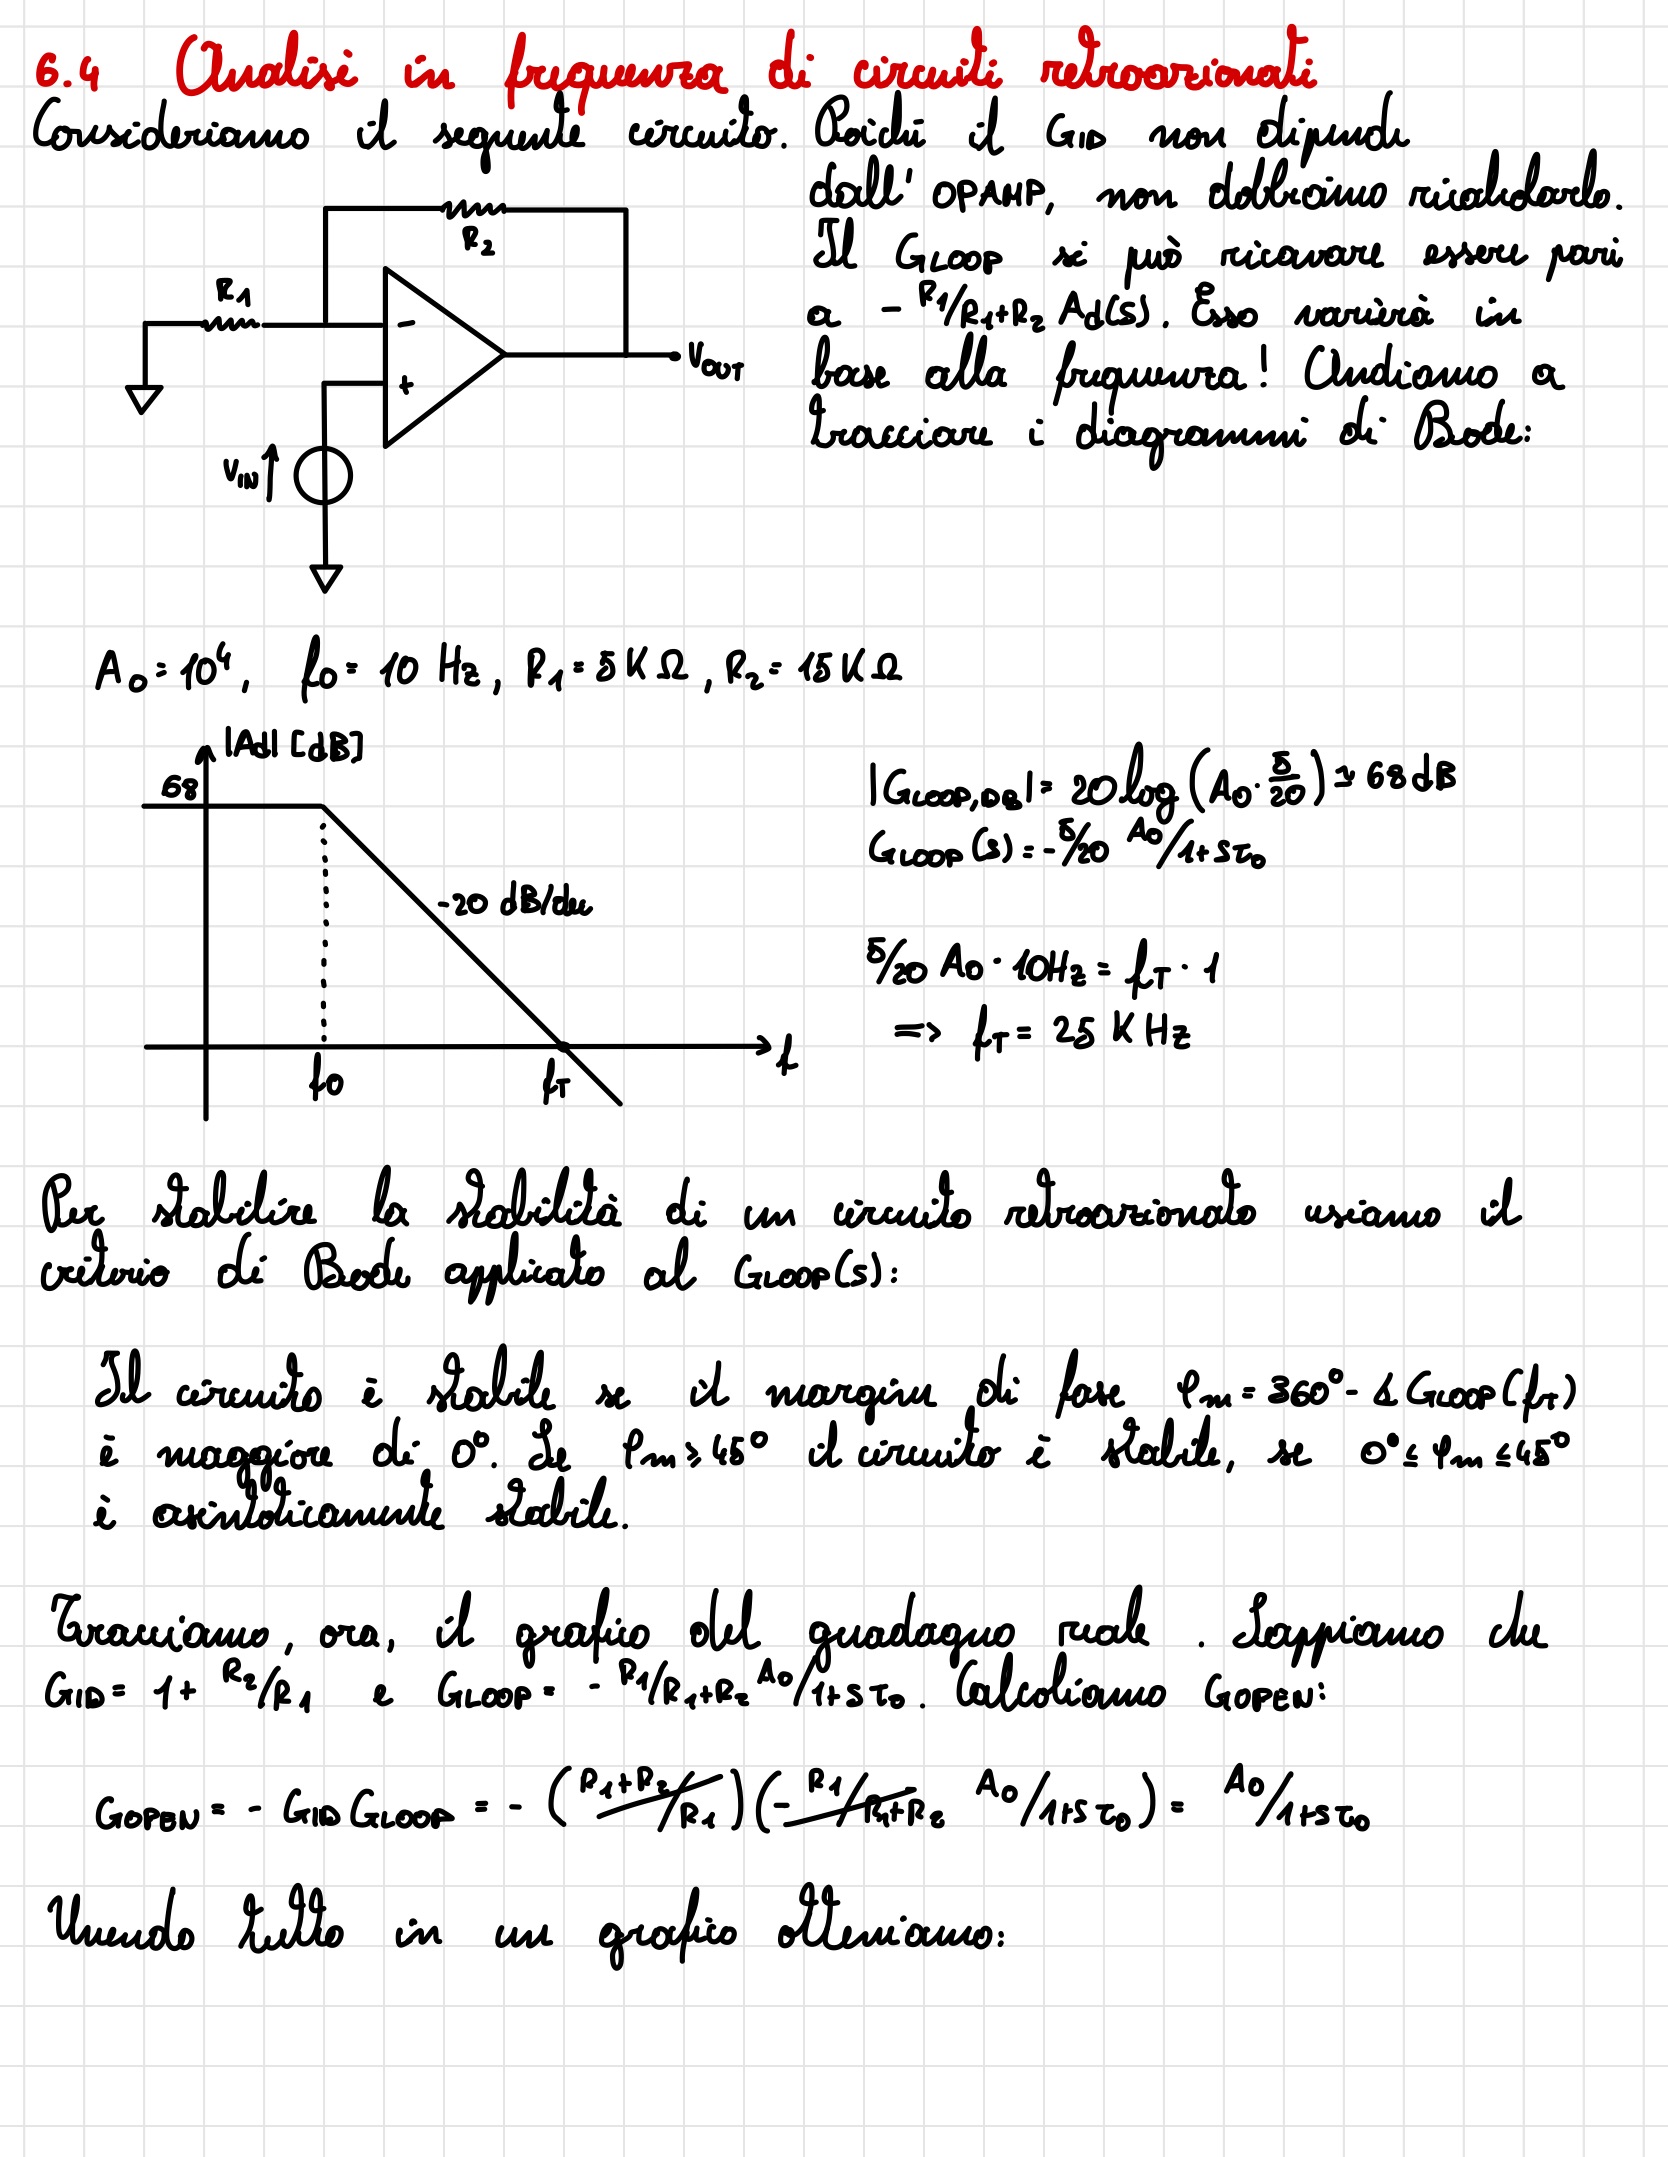 6.4 Analisi in frequenza di circuiti retroazionati
Consideriamo il seguente circuito. Poiché il GID non dipende
dall' OPAMP, non dobbiamo ricalcolarlo.
Il GLOOP si può ricavare essere pari
a -R1/R1+R2 Ad(s). Esso varierà in
base alla frequenza! Andiamo a
tracciare i diagrammi di Bode:
R2
R1
-
+
VOUT
VIN
A0=10⁴, f0= 10 Hz, R1=5KΩ, R2=15KΩ
|Ad| [dB]
68
-20 dB/dec
f0
fT
f
|GLOOP,DB|= 20log(A0·5/20)≃68dB
GLOOP(s)=-5/20 A0/1+sτ0
5/20 A0·10Hz=fT·1
=> fT= 25 KHz
Per stabilire la stabilità di un circuito retroazionato usiamo il
criterio di Bode applicato al GLOOP(s):
Il circuito è stabile se il margine di fase φm=360°-∡GLOOP(fT)
è maggiore di 0°. Se φm≥45° il circuito è stabile, se 0°≤φm≤45°
è asintoticamente stabile.
Tracciamo, ora, il grafico del guadagno reale. Sappiamo che
GID= 1+ R2/R1 e GLOOP= -R1/R1+R2 A0/1+sτ0. Calcoliamo GOPEN:
GOPEN = - GID GLOOP = - (R1+R2/R1)(-R1/R1+R2 A0/1+sτ0) = A0/1+sτ0
Unendo tutto in un grafico otteniamo: